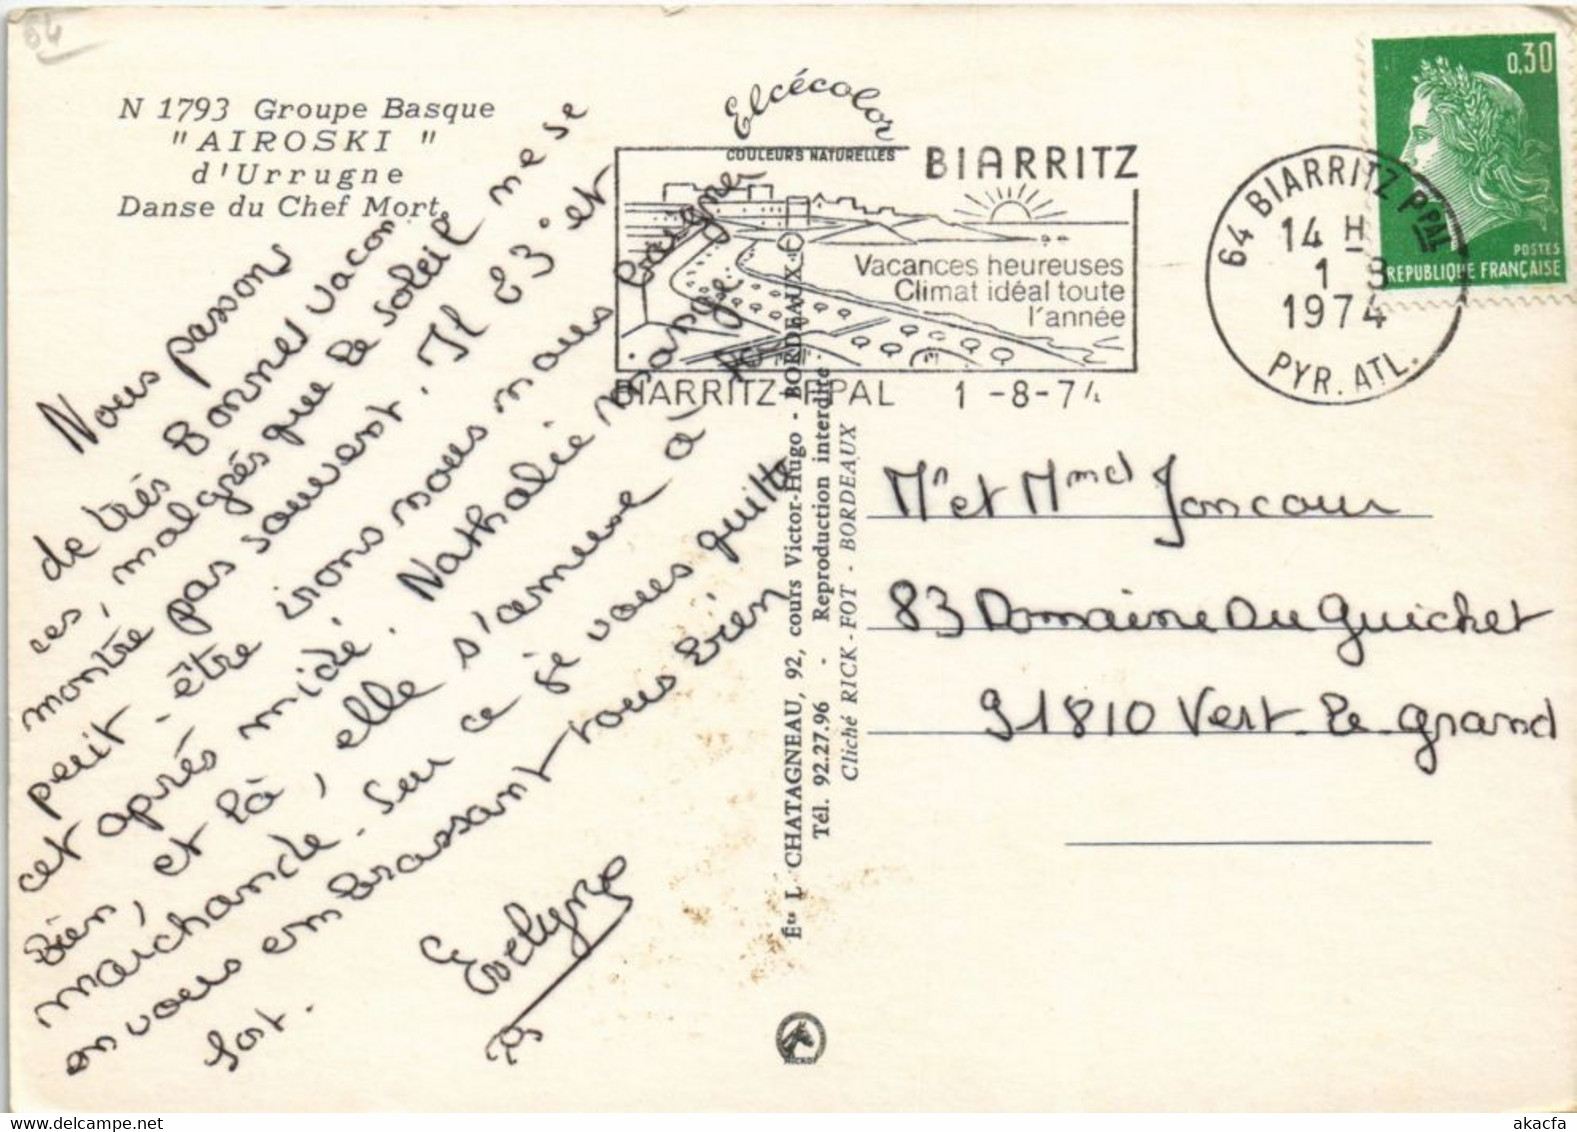 64
N 1793 Groupe Basque
"AIROSKI"
d'Urrugne
Danse du Chef Mort.
Elcécolor
COULEURS NATURELLES
BIARRITZ
Vacances heureuses
Climat idéal toute
l'année
BIARRITZ-PPAL 1-8-74
64 BIARRITZ PPAL
14 H
1 8
1974
PYR. ATL.
0,30
POSTES
REPUBLIQUE FRANÇAISE
Nous passons
de très Bonnes vacan
ces, malgrés que le soleil ne se
montre pas souvent. Il 23° et
peut-être irons nous nous baigner
cet après midi. Nathalie mange
Bien, et là, elle s'amuse à la
marchande. Sur ce je vous quitte
en vous embrassant tous Bien
fort.
Evelyne
Ets L. CHATAGNEAU, 92, cours Victor-Hugo - BORDEAUX
Tél. 92.27.96 - Reproduction interdite
Cliché RICK-FOT - BORDEAUX
Mr et Mmd Joncour
83 Domaine Du Guichet
91810 Vert-le-grand
akacfa Delcampe.net